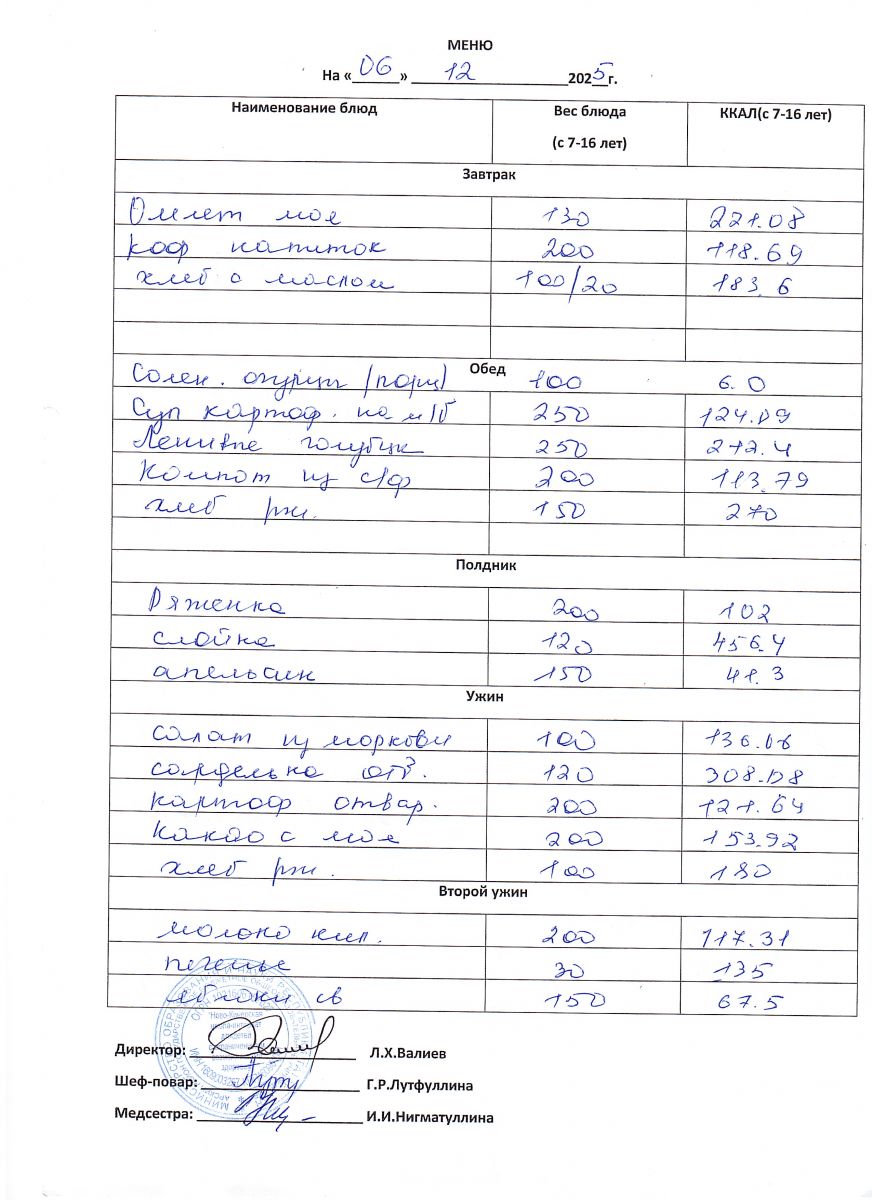 МЕНЮ
На «06» 12 2025г.
Наименование блюд Вес блюда (с 7-16 лет) ККАЛ(с 7-16 лет)
Завтрак
Омлет мол 130 221.08
коф напиток 200 118.69
хлеб с маслом 100/20 183.6
Обед
Солен. огурцы (порц) 100 6.0
Суп картоф. на м/б 250 124.09
Ленивые голубцы 250 212.4
Компот из с/ф 200 113.79
хлеб рж. 150 270
Полдник
Ряженка 200 102
слойка 120 456.4
апельсин 150 41.3
Ужин
салат из моркови 100 136.06
сарделька отв. 120 308.08
картоф отвар. 200 121.64
Какао с мол 200 153.92
хлеб рж. 100 180
Второй ужин
молоко кип. 200 117.31
печенье 30 135
яблоки св 150 67.5
Директор: Л.Х.Валиев
Шеф-повар: Г.Р.Лутфуллина
Медсестра: И.И.Нигматуллина